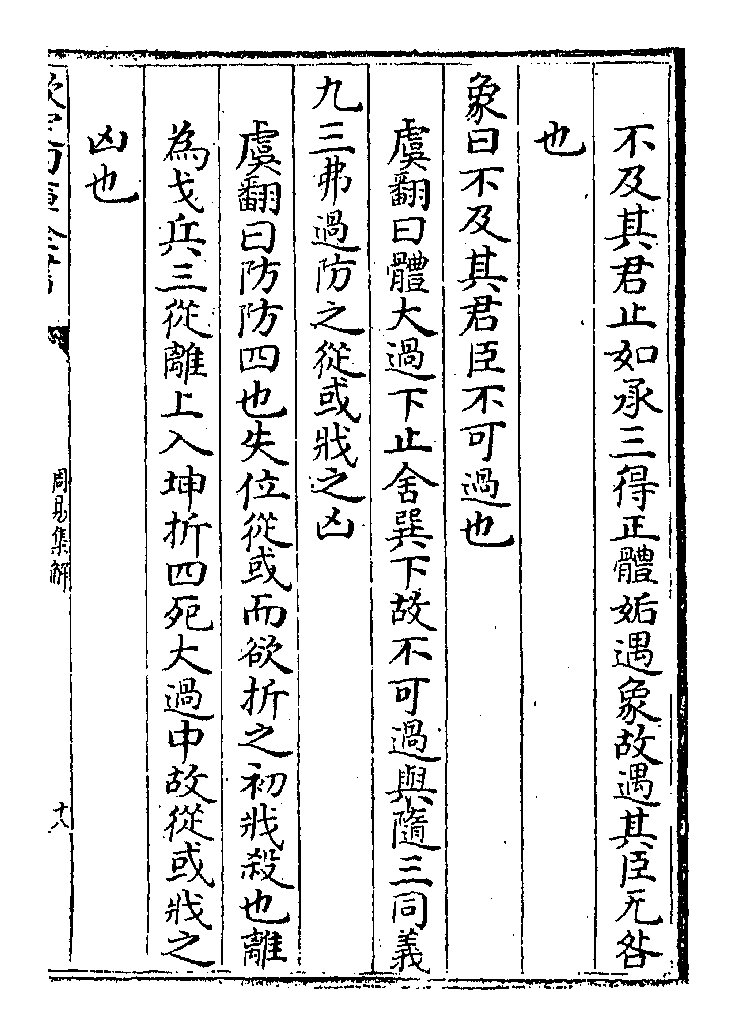 不及其君止如承三得正體姤遇象故遇其臣无咎
也
象曰不及其君臣不可過也
虞翻曰體大過下止舍巽下故不可過與隨三同義
九三弗過防之從或戕之凶
虞翻曰防防四也失位從或而欲折之初戕殺也離
為戈兵三從離上入坤折四死大過中故從或戕之
凶也
欽定四庫全書
周易集解
十八